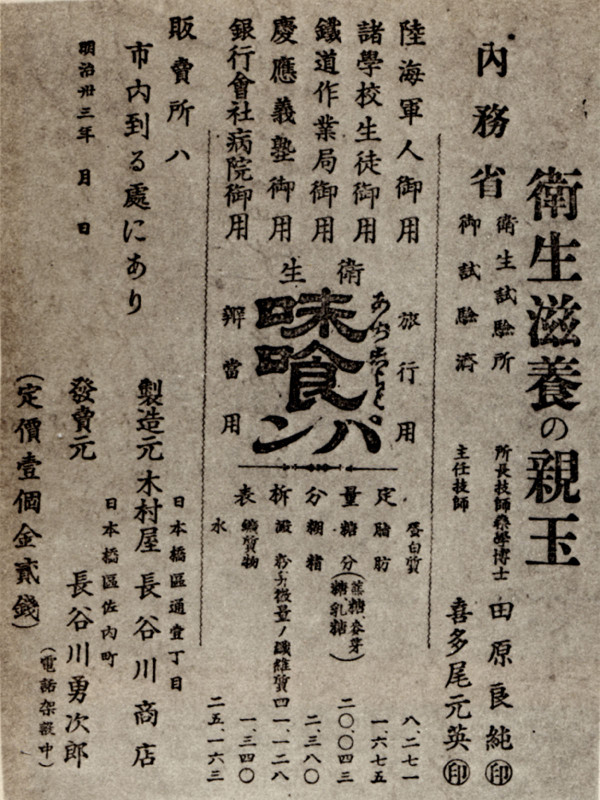 衛生滋養の親玉
內務省
衛生試驗所
御試驗濟
所長技師藥學博士 田原良純 印
主任技師 喜多尾元英 印
陸海軍人御用
諸學校生徒御用
鐵道作業局御用
慶應義塾御用
銀行會社病院御用
衛生
旅行用
味喰パン
辨當用
定量分析表
蛋白質 八、二七一
脂肪 一、六七五
糖分(蔗糖、麥芽糖、乳糖) 二〇、〇四三
糊精 二、三八〇
澱粉及微量ノ纖維質 四一、一二八
鑛質物 一、三四〇
水 二五、一六三
販賣所ハ
市內到る處にあり
明治卅三年 月 日
日本橋區通壹丁目
製造元 木村屋 長谷川商店
日本橋區佐內町
發賣元 長谷川勇次郎
(電話架設中)
(定價壹個金貳錢)